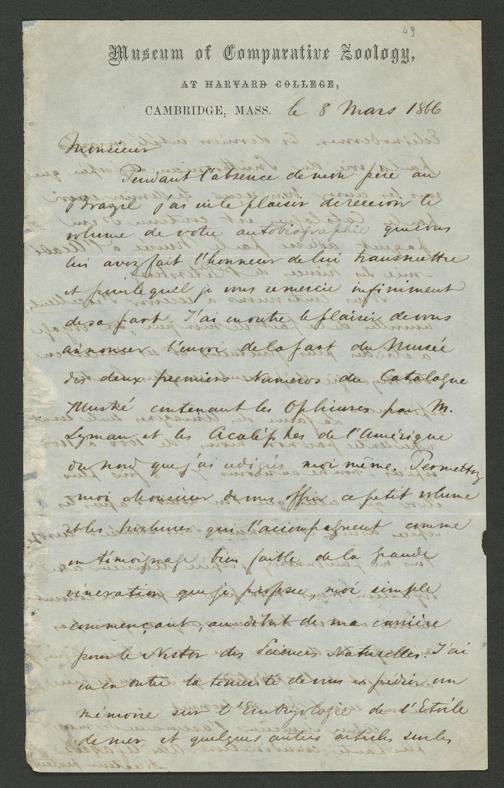 49
Museum of Comparative Zoology,
AT HARVARD COLLEGE,
CAMBRIDGE, MASS. le 8 Mars 1866
Monsieur
Pendant l'absence de mon père au
Brazil j'ai eu le plaisir de recevoir le
volume de votre autobiographie que vous
lui avez fait l'honneur de lui transmettre
et pour lequel je vous remercie infiniment
de sa part. J'ai en outre le plaisir de vous
annoncer l'envoi de la part du Musée
des deux premiers Numeros du Catalogue
Illustré contenant les Ophiures par M.
Lyman et les Acalèphes de l'Amérique
du nord que j'ai rédigés moi même. Permettez
moi Monsieur de vous offrir ce petit volume
et les brochures qui l'accompagnent comme
un témoignage bien faible de la grande
vénération que je professe, moi simple
commençant, au début de ma carrière
pour le Nestor des Sciences Naturelles. J'ai
eu en outre la témérité de vous expédier un
mémoire sur l'Embryologie de l'Etoile
de mer et quelques autres articles sur les